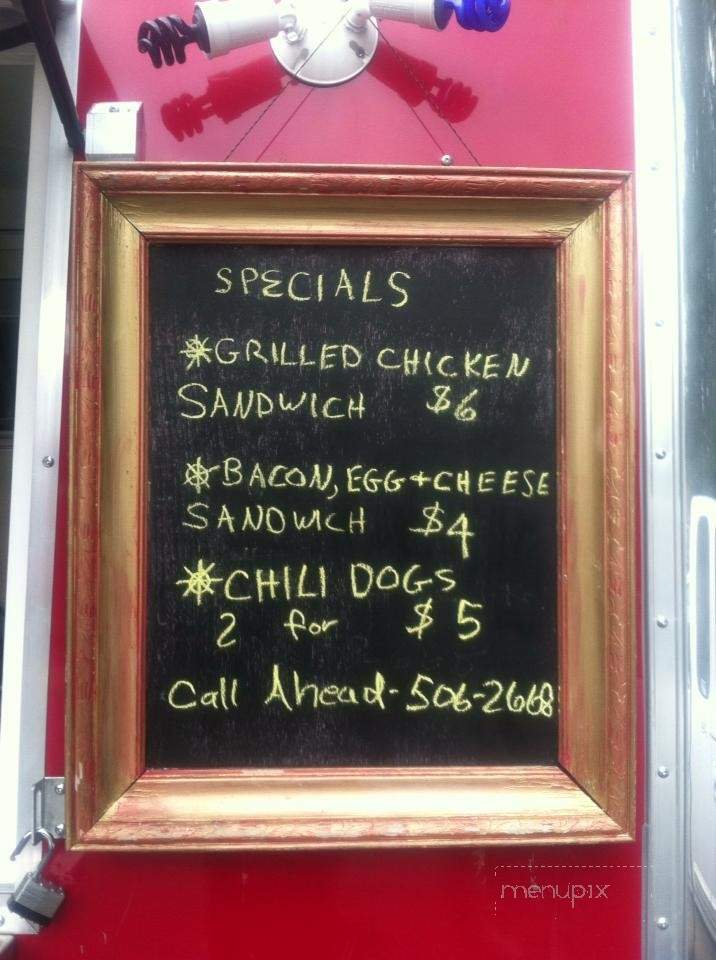 SPECIALS
*GRILLED CHICKEN
SANDWICH $6
*BACON, EGG + CHEESE
SANDWICH $4
*CHILI DOGS
2 for $5
Call Ahead - 506-2668
menupix